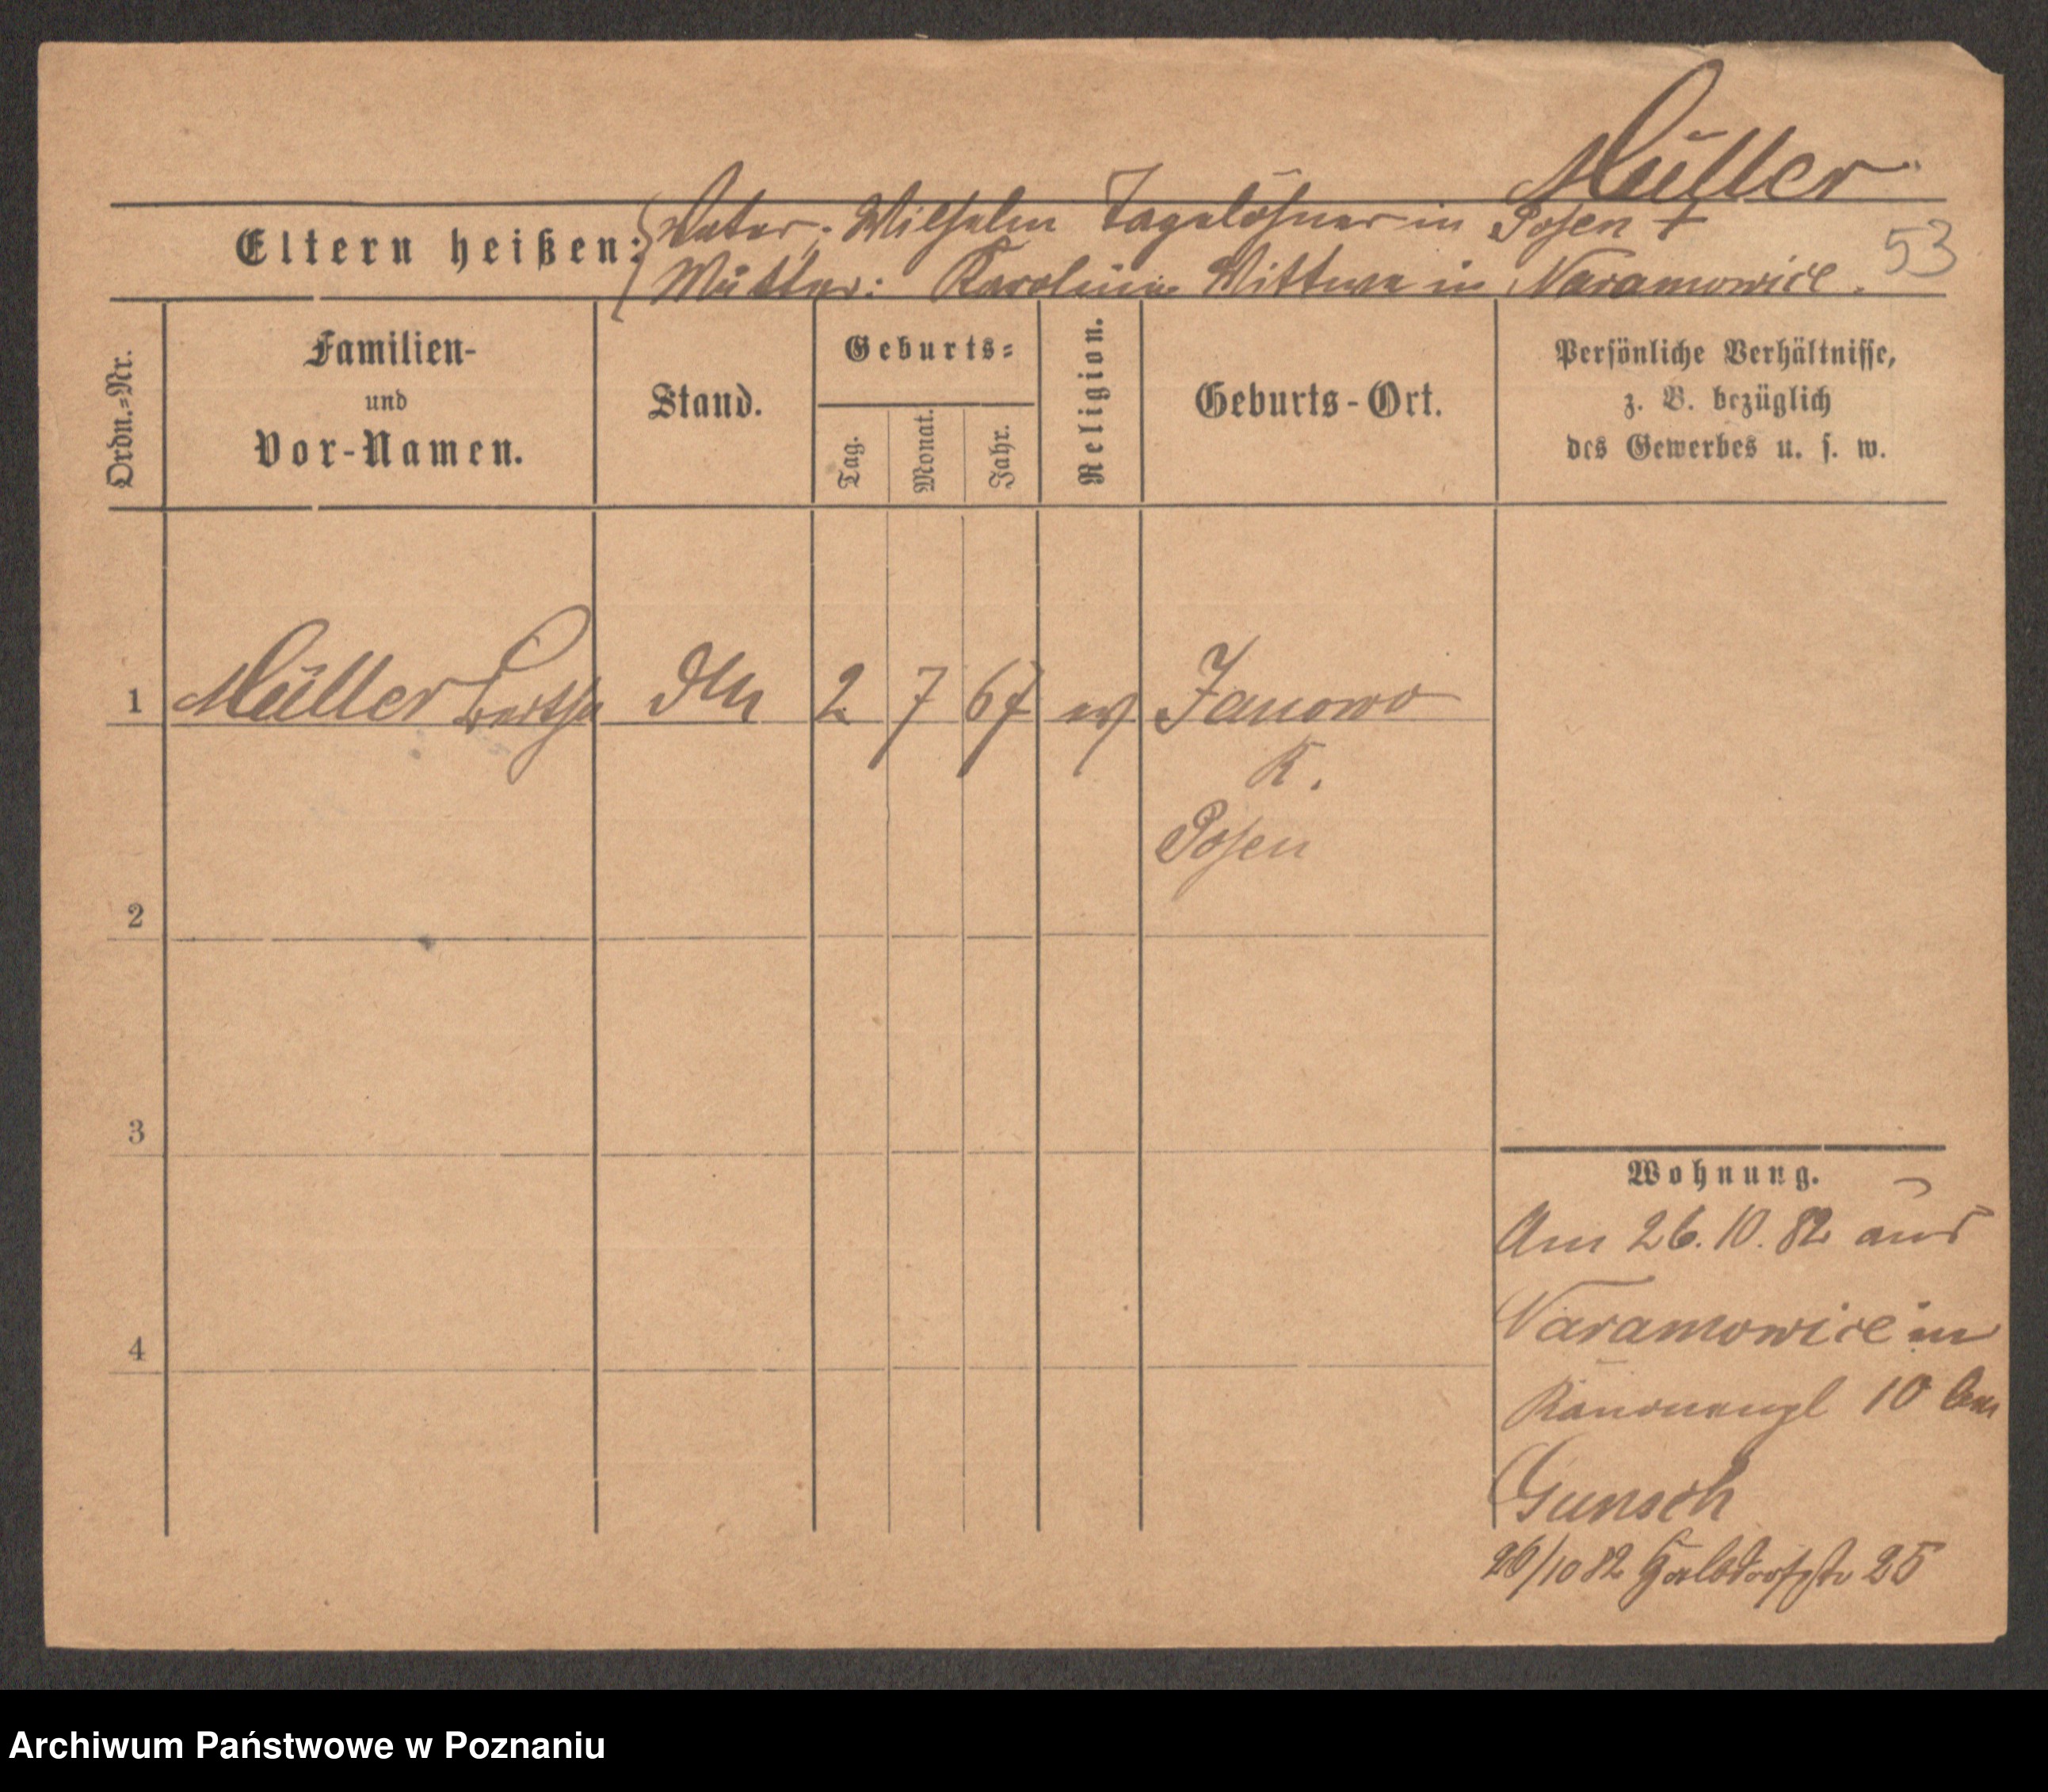 Müller
Eltern heißen: Vater: Wilhelm Tagelöhner in Posen +
Mutter: Karoline Wittwe in Naramowice.
53
Ordn.=Nr.
Familien-
und
Vor-Namen.
Stand.
Geburts=
Tag.
Monat.
Jahr.
Religion.
Geburts-Ort.
Persönliche Verhältnisse,
z. B. bezüglich
des Gewerbes u. s. w.
1 Müller Bertha 2 7 67 ev Janowo
K.
Posen
2
3
4
Wohnung.
Am 26.10.82 aus
Naramowice in
10 bei
Gunsch
26/10 82 Halbdorfstr 25
Archiwum Państwowe w Poznaniu